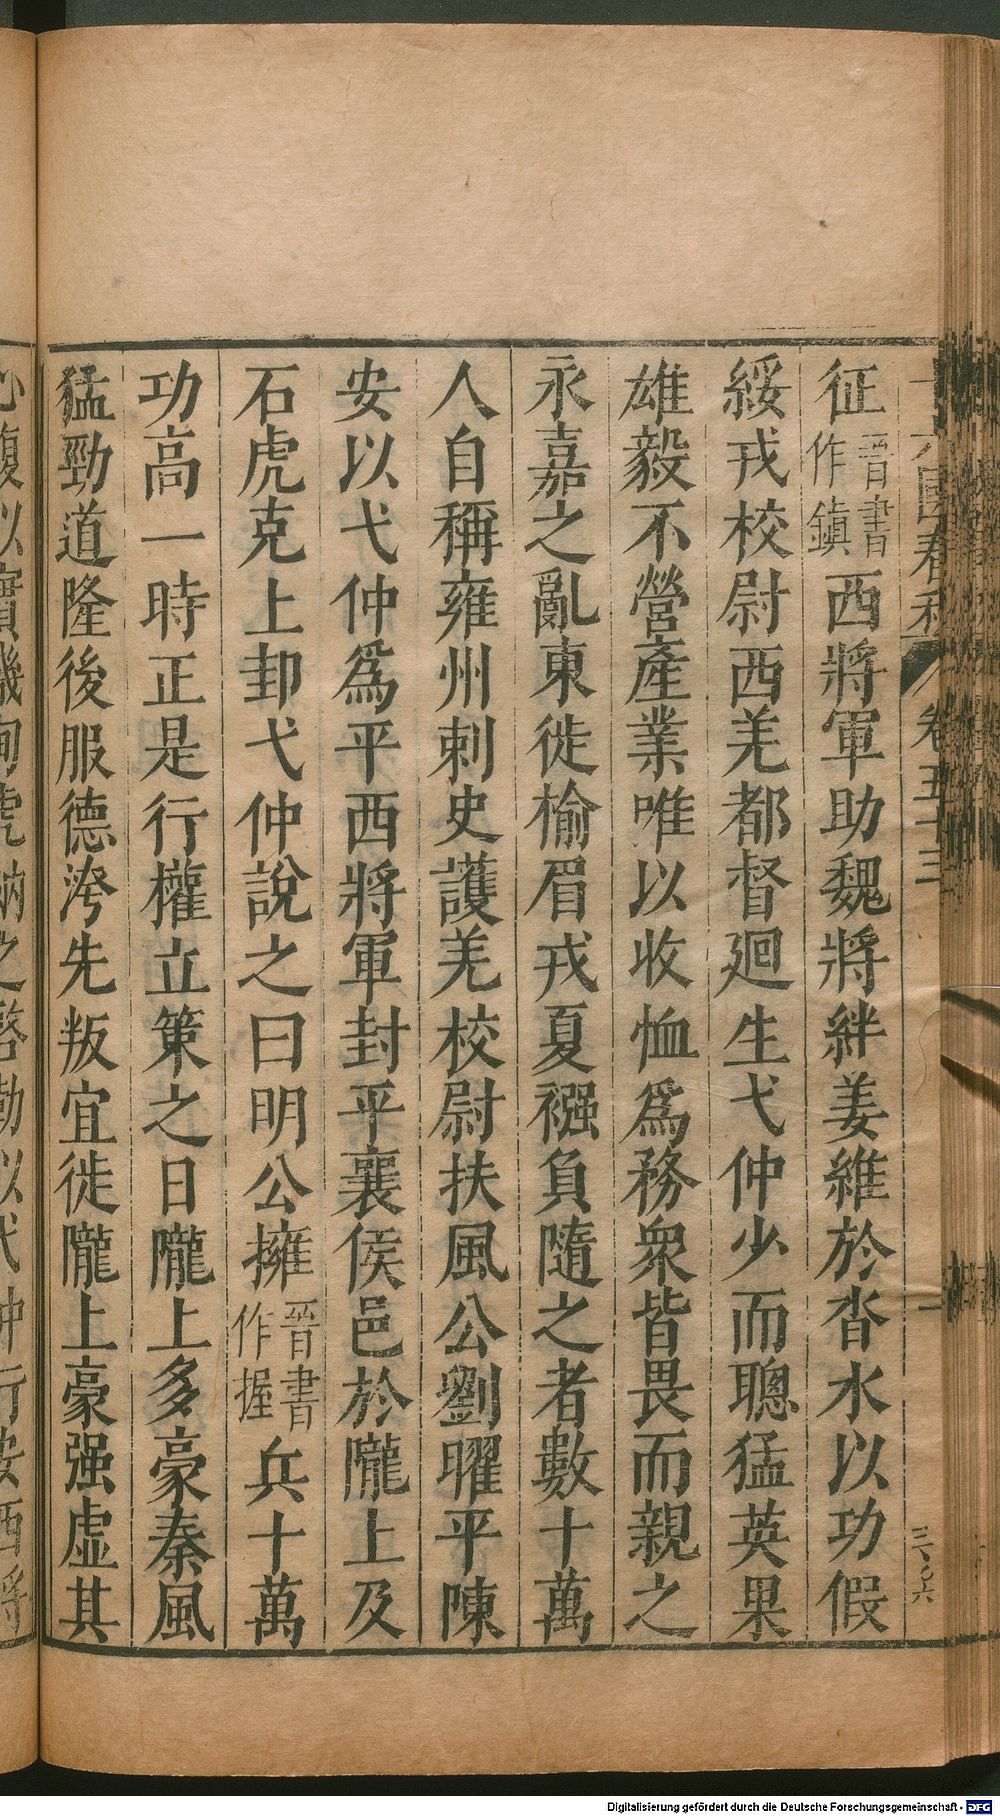 征晉書作鎮西將軍助魏將絆姜維於沓水以功假
綏戎校尉西羌都督廻生弋仲少而聰猛英果
雄毅不營產業唯以收恤爲務衆皆畏而親之
永嘉之亂東徙榆眉戎夏襁負隨之者數十萬
人自稱雍州刺史護羌校尉扶風公劉曜平陳
安以弋仲爲平西將軍封平襄侯邑於隴上及
石虎克上邽弋仲說之曰明公擁晉書作握兵十萬
功高一時正是行權立策之日隴上多豪秦風
猛勁道隆後服德洿先叛宜徙隴上豪强虛其
心腹以實畿甸虎納之啓勒以弋仲行安西將
卷五十三
Digitalisierung gefördert durch die Deutsche Forschungsgemeinschaft - DFG